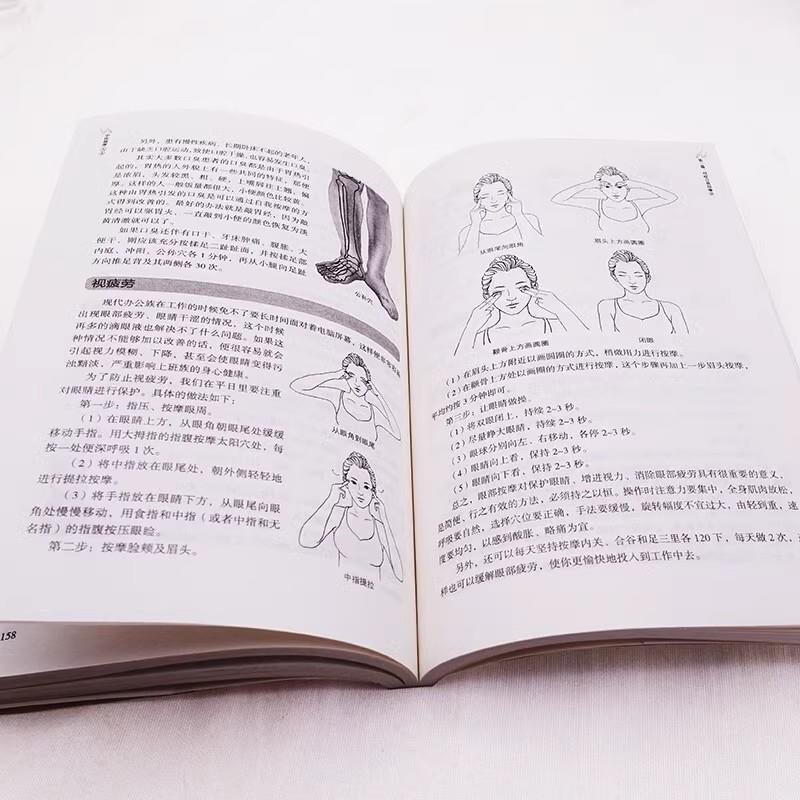 另外，患有慢性疾病、长期卧床不起的老年人，
由于缺乏口腔运动，致使口腔干燥，也容易发生口臭。
其实大多数口臭患者的口臭是由于胃热引
起的，胃热的人外貌上有一些共同的特征，那便
是浓眉，头发较黑、粗、硬，上嘴唇往上翘，偏
厚。这样的人一般饭量都很大，小便颜色比较黄。
这种由胃热引发的口臭是可以通过自我按摩的方
式得到改善的。最好的办法就是敲胃经，因为敲
胃经可以驱胃火，一直敲到小便的颜色恢复为淡
黄清澈就可以了。
如果口臭还伴有口干、牙床肿痛、腹胀、大
便干，则应该充分按揉足二趾趾面，并按揉足部
内庭、冲阳、公孙穴各1分钟，再从小腿向足趾
方向推足背及其两侧各30次。
公孙穴
视疲劳
现代办公族在工作的时候免不了要长时间面对着电脑屏幕，这样便非常容易
出现眼部疲劳、眼睛干涩的情况，这个时候
再多的滴眼液也解决不了什么问题。如果这
种情况不能够加以改善的话，便很容易就会
引起视力模糊、下降，甚至会使眼睛变得污
浊黯淡，严重影响上班族的身心健康。
为了防止视疲劳，我们在平日里要注重
对眼睛进行保护。具体的做法如下：
第一步：指压、按摩眼周。
（1）在眼睛上方，从眼角朝眼尾处缓缓
移动手指。用大拇指的指腹按摩太阳穴处，每
按一处便深呼吸1次。
（2）将中指放在眼尾处，朝外侧轻轻地
进行提拉按摩。
（3）将手指放在眼睛下方，从眼尾向眼
角处慢慢移动，用食指和中指（或者中指和无
名指）的指腹按压眼睑。
第二步：按摩脸颊及眉头。
从眼角到眼尾
中指提拉
158
从眼尾向眼角
眉头上方画圆圈
颧骨上方画圆圈
闭眼
（1）在眉头上方附近以画圆圈的方式，稍微用力进行按摩。
（2）在颧骨上方处以画圈的方式进行按摩，这个步骤再加上一步眉头按摩，
平均约按3分钟即可。
第三步：让眼睛做操。
（1）将双眼闭上，持续2~3秒。
（2）尽量睁大眼睛，持续2~3秒。
（3）眼球分别向左、右移动，各停2~3秒。
（4）眼睛向上看，保持2~3秒。
（5）眼睛向下看，保持2~3秒。
总之，眼部按摩对保护眼睛，增进视力、消除眼部疲劳具有很重要的意义，
是简便，行之有效的方法，必须持之以恒。操作时注意力要集中，全身肌肉放松，
呼吸要自然，选择穴位要正确，手法要缓慢，旋转幅度不宜过大，由轻到重，速
度要均匀，以感到酸胀、略痛为宜。
另外，还可以每天坚持按摩内关、合谷和足三里各120下，每天做2次，
样也可以缓解眼部疲劳，使你更愉快地投入到工作中去。